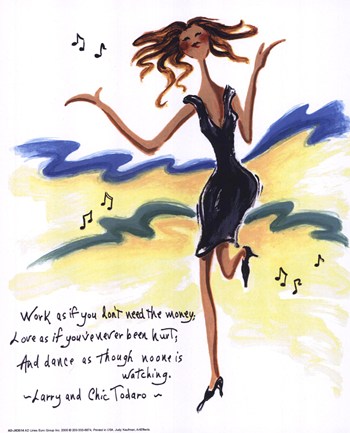 Work as if you don't need the money,
Love as if you've never been hurt,
And dance as though no one is
watching.
~Larry and Chic Todaro ~